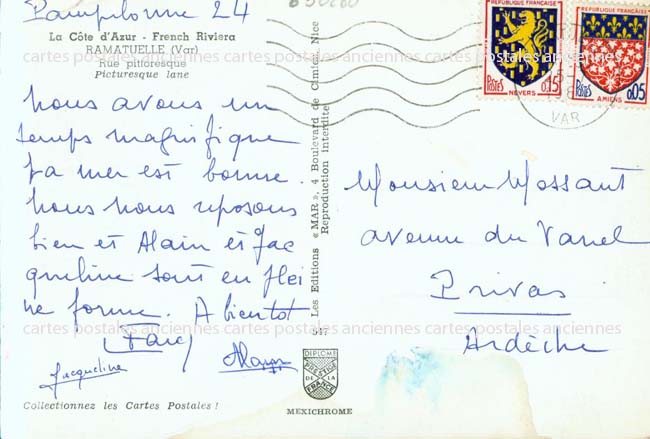 Pampelonne 24
La Côte d'Azur - French Riviera
RAMATUELLE (Var)
Rue pittoresque
Picturesque lane
Nous avons un
temps magnifique
La mer est bonne.
Nous nous reposons
bien et Alain et Jac
queline sont en plei
ne forme. A bientot
Jacqueline
Alain
Collectionnez les Cartes Postales !
Les Editions « MAR », 4 Boulevard de Cimiez, Nice
Reproduction interdite
547
DIPLOME
PRESTIGE
DE LA
FRANCE
MEXICHROME
REPUBLIQUE FRANÇAISE
POSTES
0,15
NEVERS
REPUBLIQUE FRANÇAISE
POSTES
0,05
AMIENS
VAR
Monsieur Mossant
avenue du Vanel
Privas
Ardèche
cartes postales anciennes cartes postales anciennes cartes postales anciennes